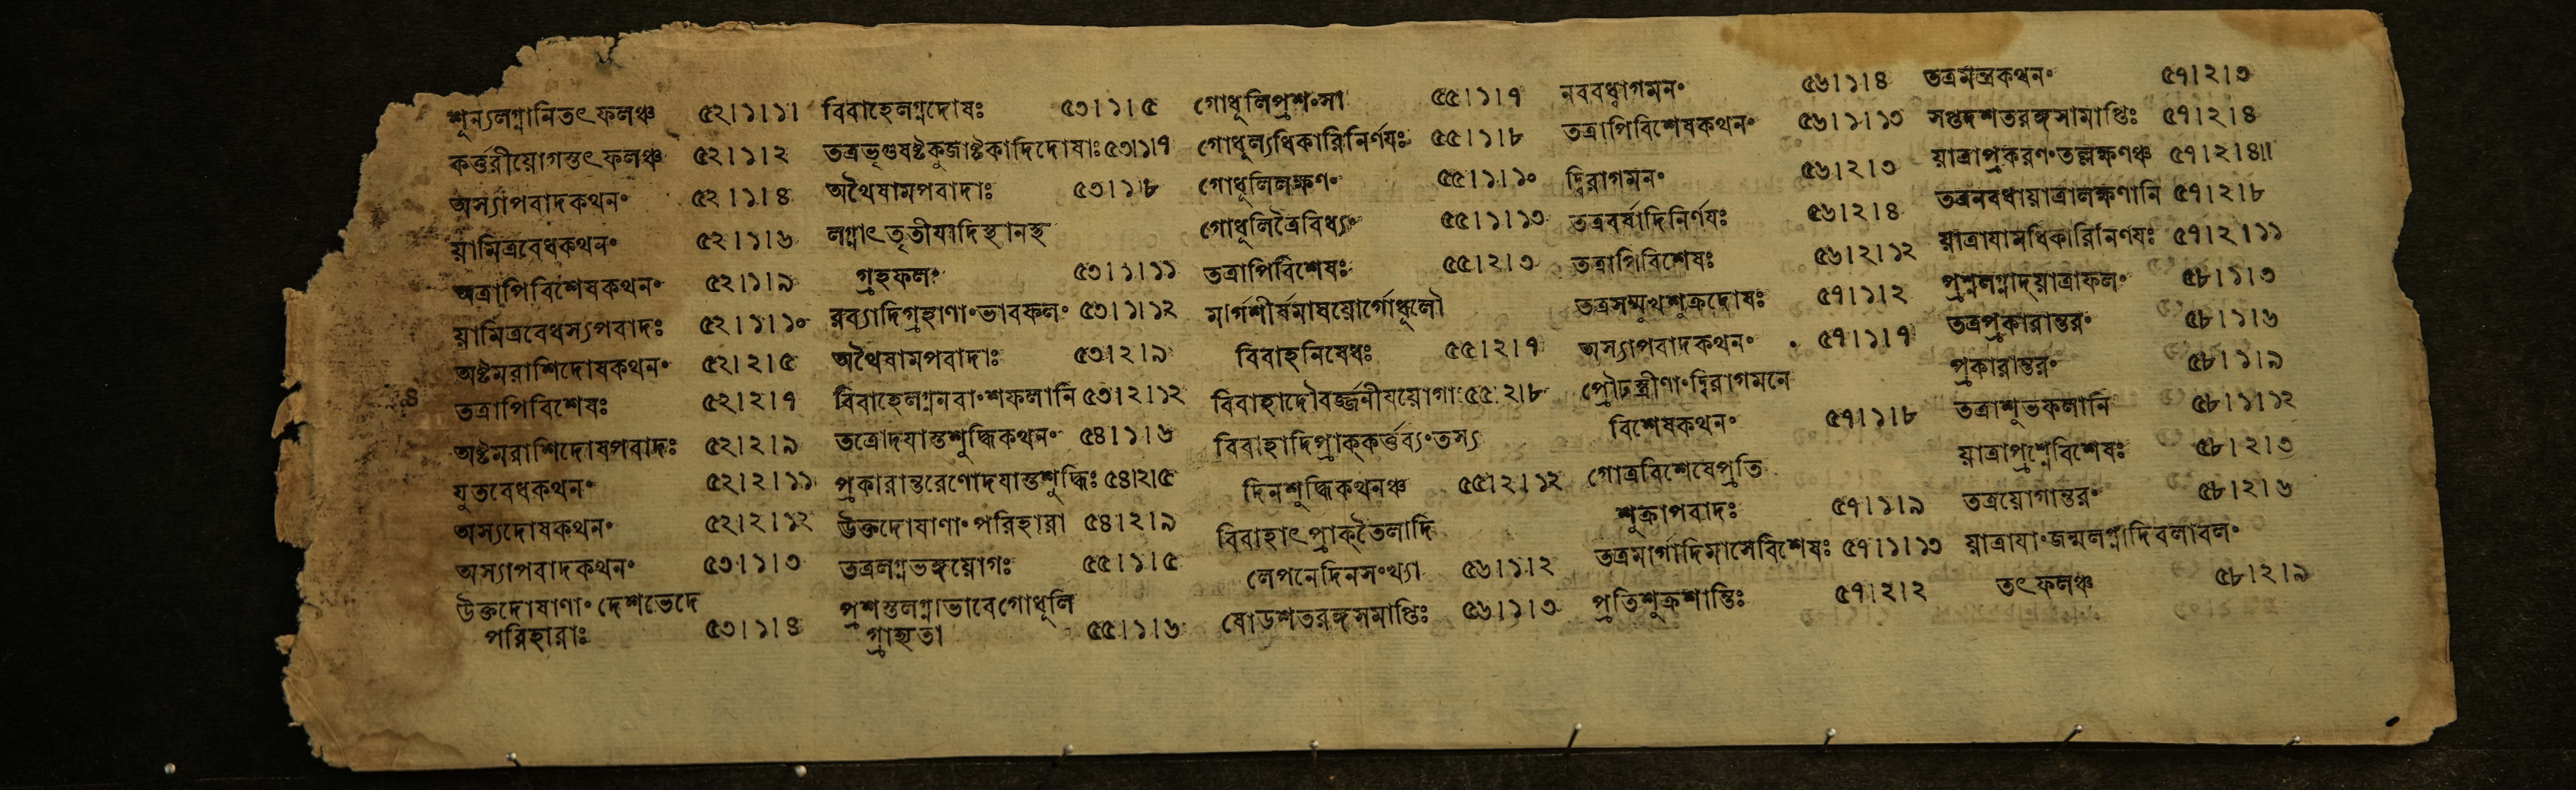 শূন্যলগ্নানিতৎফলঞ্চ ৫২।১।১।
কর্ত্তরীয়োগস্তৎফলঞ্চ ৫২।১।২
অস্যাপবাদকথন॰ ৫২।১।৪
য়ামিত্রবেধকথন॰ ৫২।১।৬
অত্রাপিবিশেষকথন॰ ৫২।১।৯
য়ামিত্রবেধস্যপবাদঃ ৫২।১।১০
অষ্টমরাশিদোষকথন॰ ৫২।২।৫
তত্রাপিবিশেষঃ ৫২।২।৭
অষ্টমরাশিদোষপবাদঃ ৫২।২।৯
যুতবেধকথন॰ ৫২।২।১১
অস্যদোষকথন॰ ৫২।২।১২
অস্যাপবাদকথন॰ ৫৩।১।৩
উক্তদোষাণা॰ দেশভেদে
পরিহারাঃ ৫৩।১।৪
বিবাহেলগ্নদোষঃ ৫৩।১।৫
তত্রভৃগুষষ্টকুজাষ্টকাদিদোষাঃ ৫৩।১।৭
অথৈষামপবাদাঃ ৫৩।১।৮
লগ্নাৎতৃতীযাদিস্থানস্থ
গ্রহফল॰ ৫৩।১।১১
রব্যাদিগ্রহাণা॰ভাবফল॰ ৫৩।১।১২
অথৈষামপবাদাঃ ৫৩।২।৯
বিবাহেলগ্ননবা॰শফলানি ৫৩।২।১২
তত্রোদযাস্তশুদ্ধিকথন॰ ৫৪।১।৬
প্রকারান্তরেণোদযাস্তশুদ্ধিঃ ৫৪।২।৫
উক্তদোষাণা॰ পরিহারা ৫৪।২।৯
তত্রলগ্নভঙ্গয়োগঃ ৫৫।১।৫
প্রশস্তলগ্নাভাবেগোধূলি
গ্রাহ্যতা ৫৫।১।৬
গোধূলিপ্রশ॰সা ৫৫।১।৭
গোধূল্যধিকারিনির্ণযঃ ৫৫।১।৮
গোধূলিলক্ষণ॰ ৫৫।১।১০
গোধূলিত্রৈবিধ্য॰ ৫৫।১।১৩
তত্রাপিবিশেষঃ ৫৫।২।৩
মার্গশীর্ষমাষয়োর্গোধূলৌ
বিবাহনিষেধঃ ৫৫।২।৭
বিবাহাদৌবর্জ্জনীযয়োগাঃ ৫৫।২।৮
বিবাহাদিপ্রাক্কর্ত্তব্য॰তস্য
দিনশুদ্ধিকথনঞ্চ ৫৫।২।১২
বিবাহাৎপ্রাক্তৈলাদি
লেপনেদিনস॰খ্যা ৫৬।১।২
ষোডশতরঙ্গসমাপ্তিঃ ৫৬।১।৩
নববধ্বাগমন॰ ৫৬।১।৪
তত্রাপিবিশেষকথন॰ ৫৬।১।১৩
দ্বিরাগমন॰ ৫৬।২।৩
তত্রবর্ষাদিনির্ণযঃ ৫৬।২।৪
তত্রাপিবিশেষঃ ৫৬।২।১২
তত্রসম্মুখশুক্রদোষঃ ৫৭।১।২
অস্যাপবাদকথন॰ ৫৭।১।৭
প্রৌঢস্ত্রীণা॰দ্বিরাগমনে
বিশেষকথন॰ ৫৭।১।৮
গোত্রবিশেষেপ্রতি
শুক্রাপবাদঃ ৫৭।১।৯
তত্রমার্গাদিমাসেবিশেষঃ ৫৭।১।১৩
প্রতিশুক্রশান্তিঃ ৫৭।২।২
তত্রমন্ত্রকথন॰ ৫৭।২।৩
সপ্তদশতরঙ্গসামাপ্তিঃ ৫৭।২।৪
য়াত্রাপ্রকরণ॰তল্লক্ষণঞ্চ ৫৭।২।৪॥
তত্রনবধায়াত্রালক্ষণানি ৫৭।২।৮
য়াত্রাযামধিকারিনির্ণযঃ ৫৭।২।১১
প্রশ্নলগ্নাদ্য়াত্রাফল॰ ৫৮।১।৩
তত্রপ্রকারান্তর॰ ৫৮।১।৬
প্রকারান্তর॰ ৫৮।১।৯
তত্রাশুভফলানি ৫৮।১।১২
য়াত্রাপ্রশ্নেবিশেষঃ ৫৮।২।৩
তত্রয়োগান্তর॰ ৫৮।২।৬
য়াত্রাযা॰জন্মলগ্নাদিবলাবল॰
তৎফলঞ্চ ৫৮।২।৯